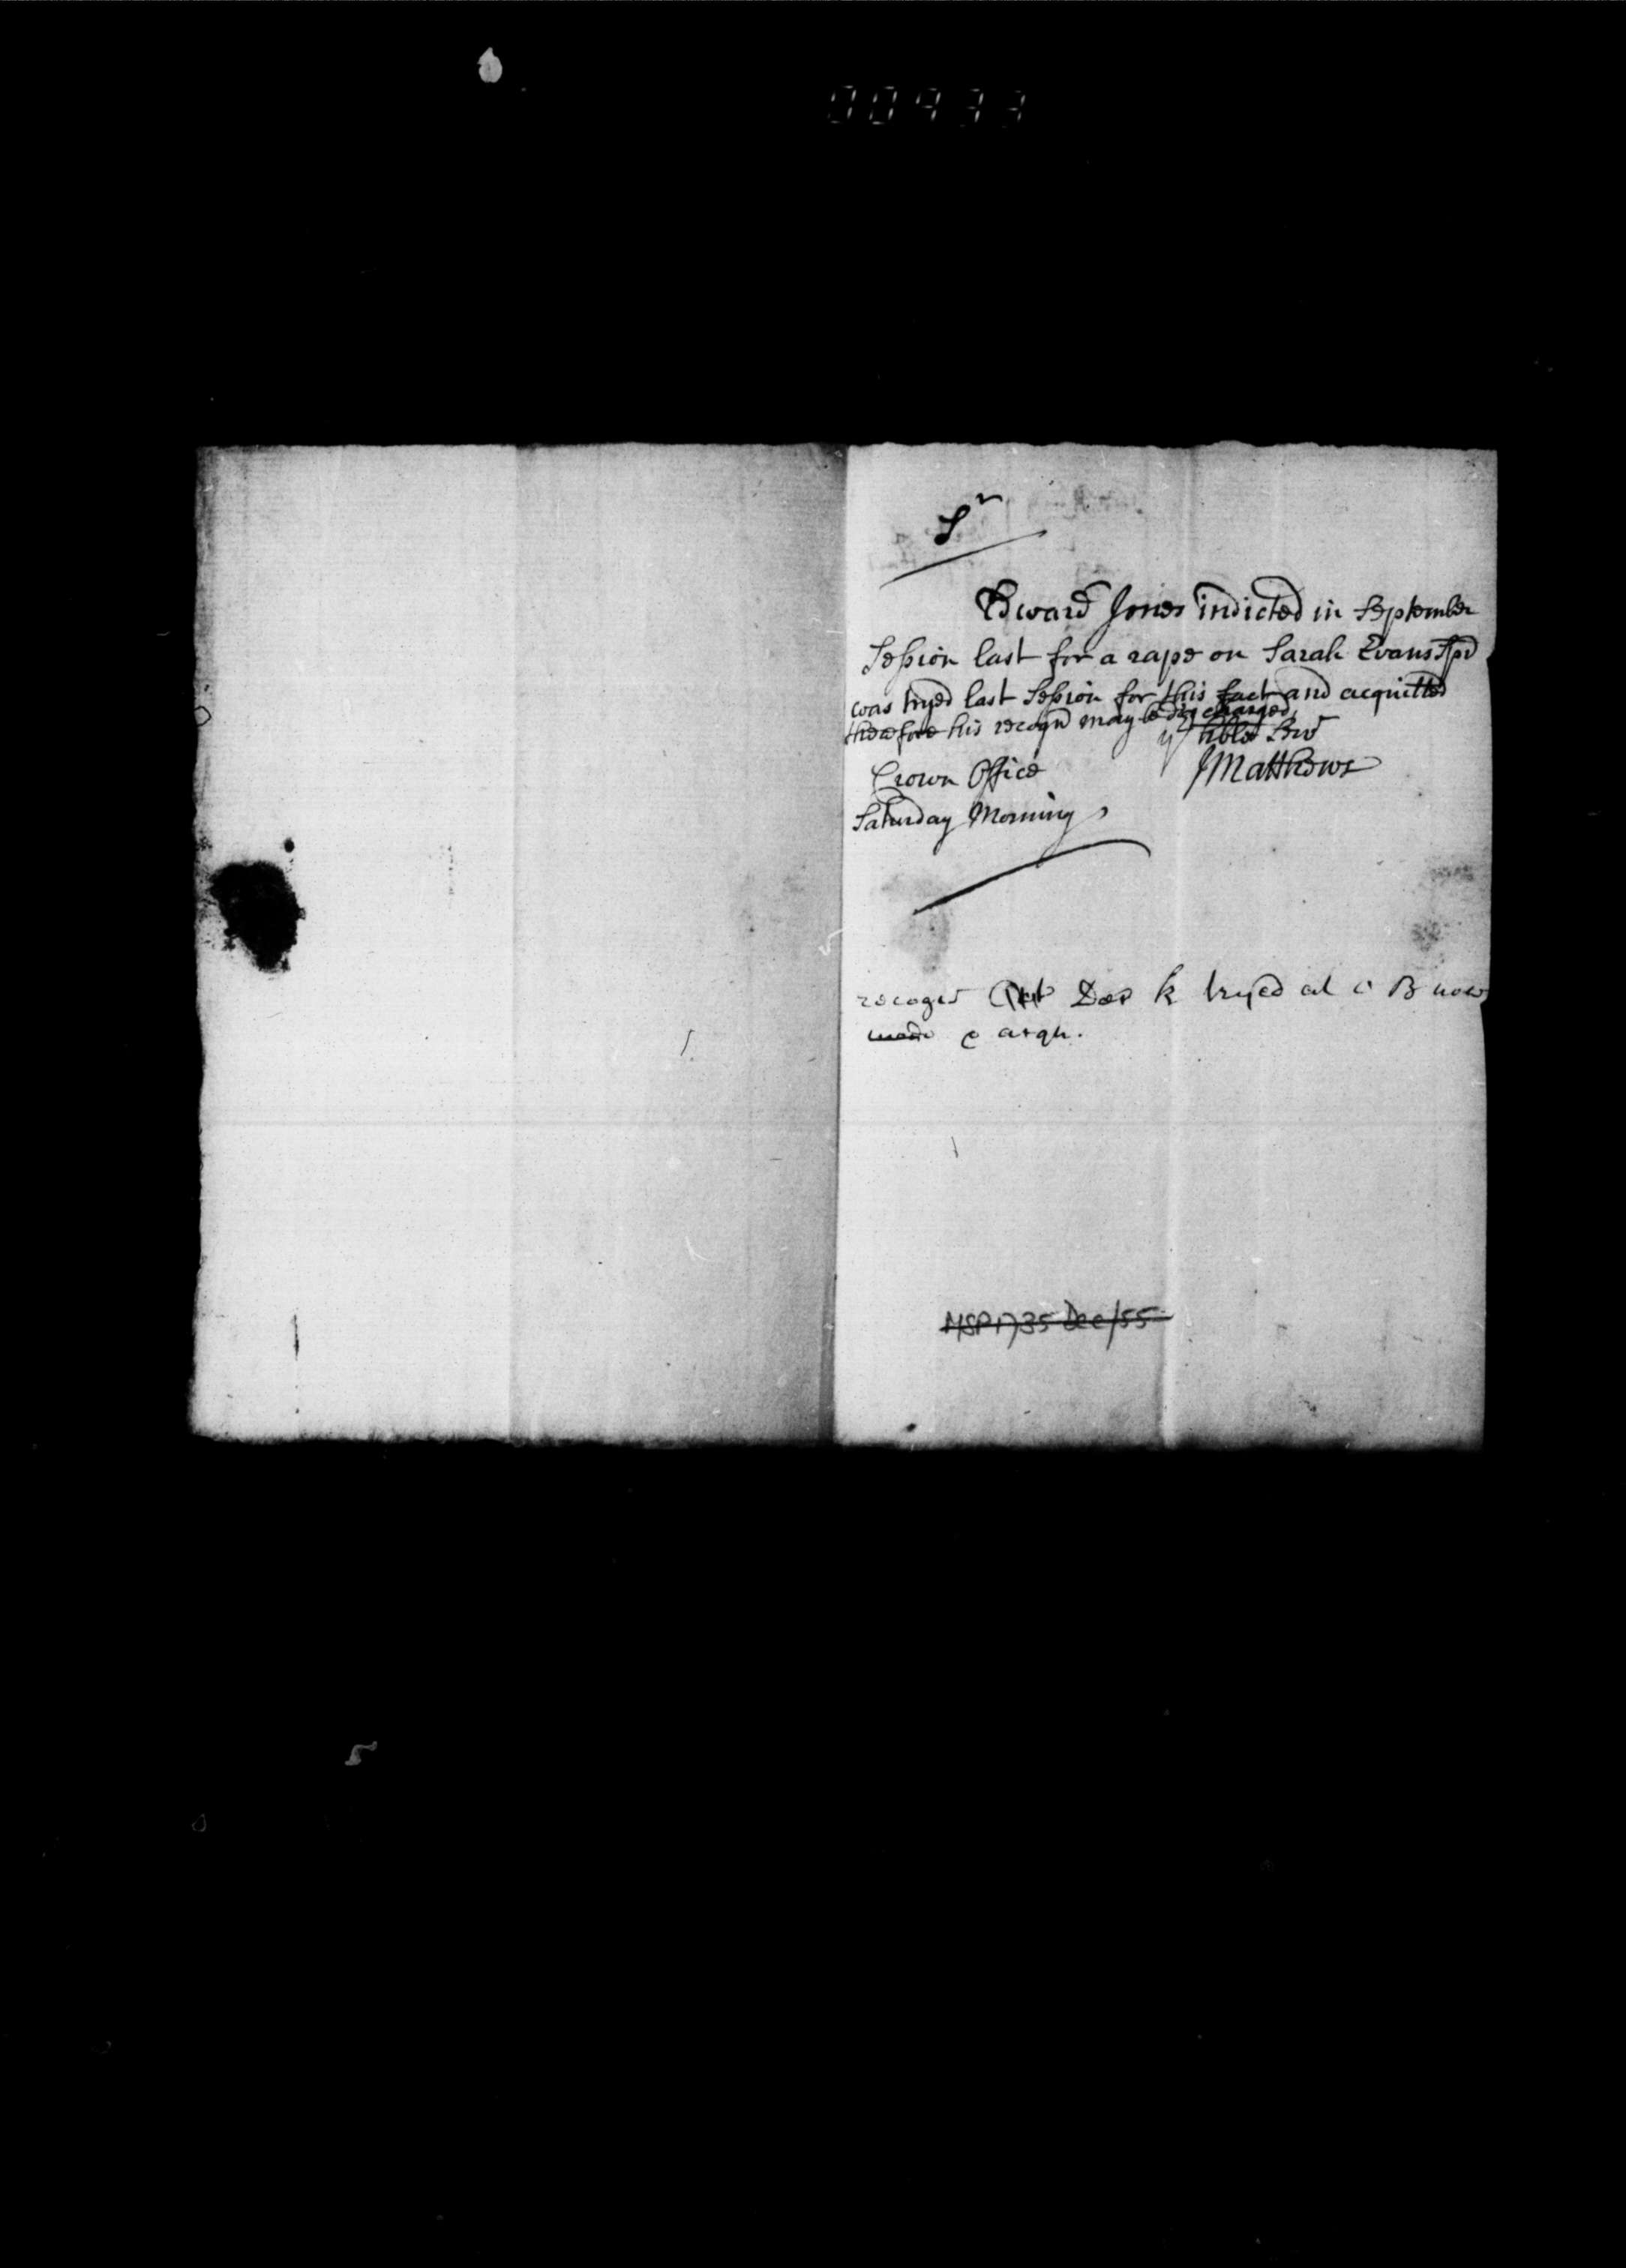 00933
Sr
Edward Jones indicted in September
Session last for a rape on Sarah Evans Spr
was tryed last Session for this fact and acquitted
therefore his recogn may be discharged
yr hble Serv
JMatthews
Crown Office
Saturday Morning
recogn Def tryed at O B now
made
MSP 1735 Dec/55